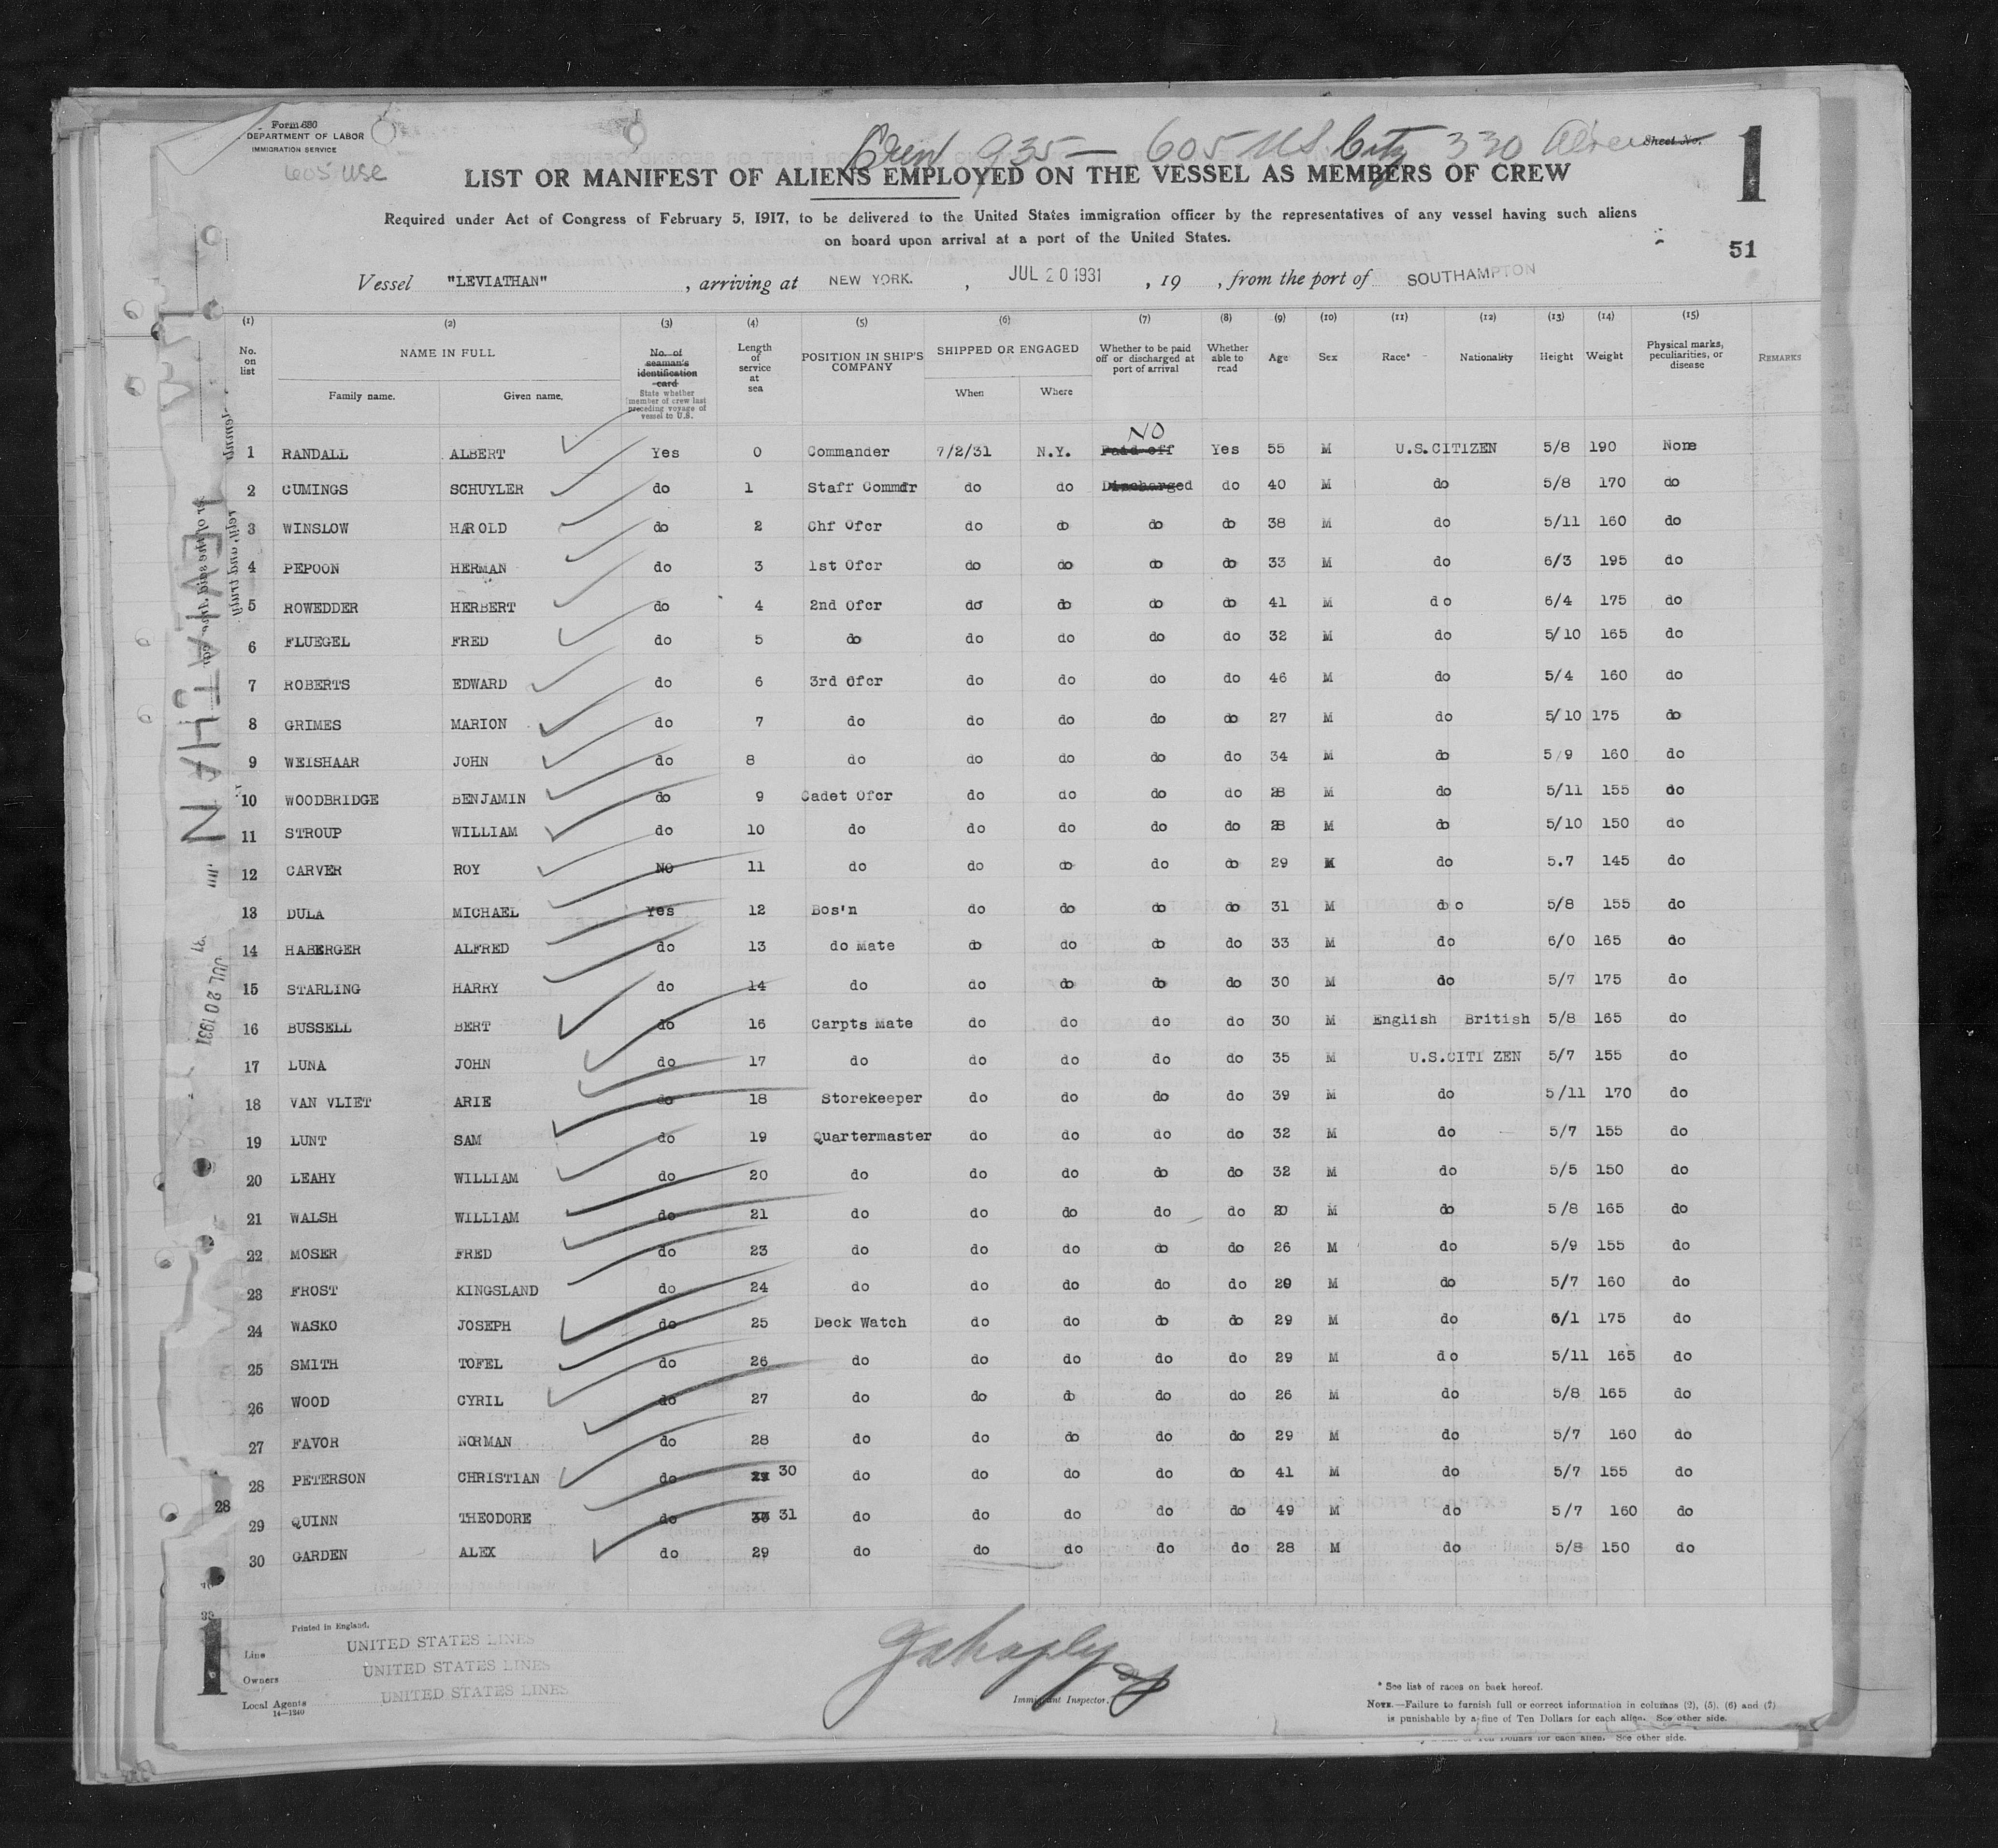 Form 680
DEPARTMENT OF LABOR
IMMIGRATION SERVICE
605 USC
Crew 935 — 605 US Citz 330 Aliens
Sheet No.
1
LIST OR MANIFEST OF ALIENS EMPLOYED ON THE VESSEL AS MEMBERS OF CREW
Required under Act of Congress of February 5, 1917, to be delivered to the United States immigration officer by the representatives of any vessel having such aliens
on board upon arrival at a port of the United States.
51
Vessel "LEVIATHAN" , arriving at NEW YORK. , JUL 20 1931 , 19 , from the port of SOUTHAMPTON
(1) (2) (3) (4) (5) (6) (7) (8) (9) (10) (11) (12) (13) (14) (15)
No. on list NAME IN FULL Family name. Given name. No. of seaman's identification card State whether member of crew last preceding voyage of vessel to U.S. Length of service at sea POSITION IN SHIP'S COMPANY SHIPPED OR ENGAGED When Where Whether to be paid off or discharged at port of arrival Whether able to read Age Sex Race* Nationality Height Weight Physical marks, peculiarities, or disease REMARKS
NO
1 RANDALL ALBERT Yes 0 Commander 7/2/31 N.Y. Paid off Yes 55 M U.S.CITIZEN 5/8 190 None
2 CUMINGS SCHUYLER do 1 Staff Commdr do do Discharged do 40 M do 5/8 170 do
3 WINSLOW HAROLD do 2 Chf Ofcr do do do do 38 M do 5/11 160 do
4 PEPOON HERMAN do 3 1st Ofcr do do do do 33 M do 6/3 195 do
5 ROWEDDER HERBERT do 4 2nd Ofcr do do do do 41 M do 6/4 175 do
6 FLUEGEL FRED do 5 do do do do do 32 M do 5/10 165 do
7 ROBERTS EDWARD do 6 3rd Ofcr do do do do 46 M do 5/4 160 do
8 GRIMES MARION do 7 do do do do do 27 M do 5/10 175 do
9 WEISHAAR JOHN do 8 do do do do do 34 M do 5/9 160 do
10 WOODBRIDGE BENJAMIN do 9 Cadet Ofcr do do do do 28 M do 5/11 155 do
11 STROUP WILLIAM do 10 do do do do do 28 M do 5/10 150 do
12 CARVER ROY NO 11 do do do do do 29 M do 5.7 145 do
13 DULA MICHAEL Yes 12 Bos'n do do do do 31 M do 5/8 155 do
14 HABERGER ALFRED do 13 do Mate do do do do 33 M do 6/0 165 do
15 STARLING HARRY do 14 do do do do do 30 M do 5/7 175 do
16 BUSSELL BERT do 16 Carpts Mate do do do do 30 M English British 5/8 165 do
17 LUNA JOHN do 17 do do do do do 35 M U.S.CITI ZEN 5/7 155 do
18 VAN VLIET ARIE do 18 Storekeeper do do do do 39 M do 5/11 170 do
19 LUNT SAM do 19 Quartermaster do do do do 32 M do 5/7 155 do
20 LEAHY WILLIAM do 20 do do do do do 32 M do 5/5 150 do
21 WALSH WILLIAM do 21 do do do do do 20 M do 5/8 165 do
22 MOSER FRED do 23 do do do do do 26 M do 5/9 155 do
23 FROST KINGSLAND do 24 do do do do do 29 M do 5/7 160 do
24 WASKO JOSEPH do 25 Deck Watch do do do do 29 M do 6/1 175 do
25 SMITH TOFEL do 26 do do do do do 29 M do 5/11 165 do
26 WOOD CYRIL do 27 do do do do do 26 M do 5/8 165 do
27 FAVOR NORMAN do 28 do do do do do 29 M do 5/7 160 do
28 PETERSON CHRISTIAN do 30 do do do do do 41 M do 5/7 155 do
28
29 QUINN THEODORE do 31 do do do do do 49 M do 5/7 160 do
30 GARDEN ALEX do 29 do do do do do 28 M do 5/8 150 do
LEVIATHAN
JUL 20 1931
1
Printed in England.
Line UNITED STATES LINES
Owners UNITED STATES LINES
Local Agents UNITED STATES LINES
14—1240
Immigrant Inspector.
* See list of races on back hereof.
NOTE.—Failure to furnish full or correct information in columns (2), (5), (6) and (7)
is punishable by a fine of Ten Dollars for each alien. See other side.
Ten Dollars for each alien. See other side.